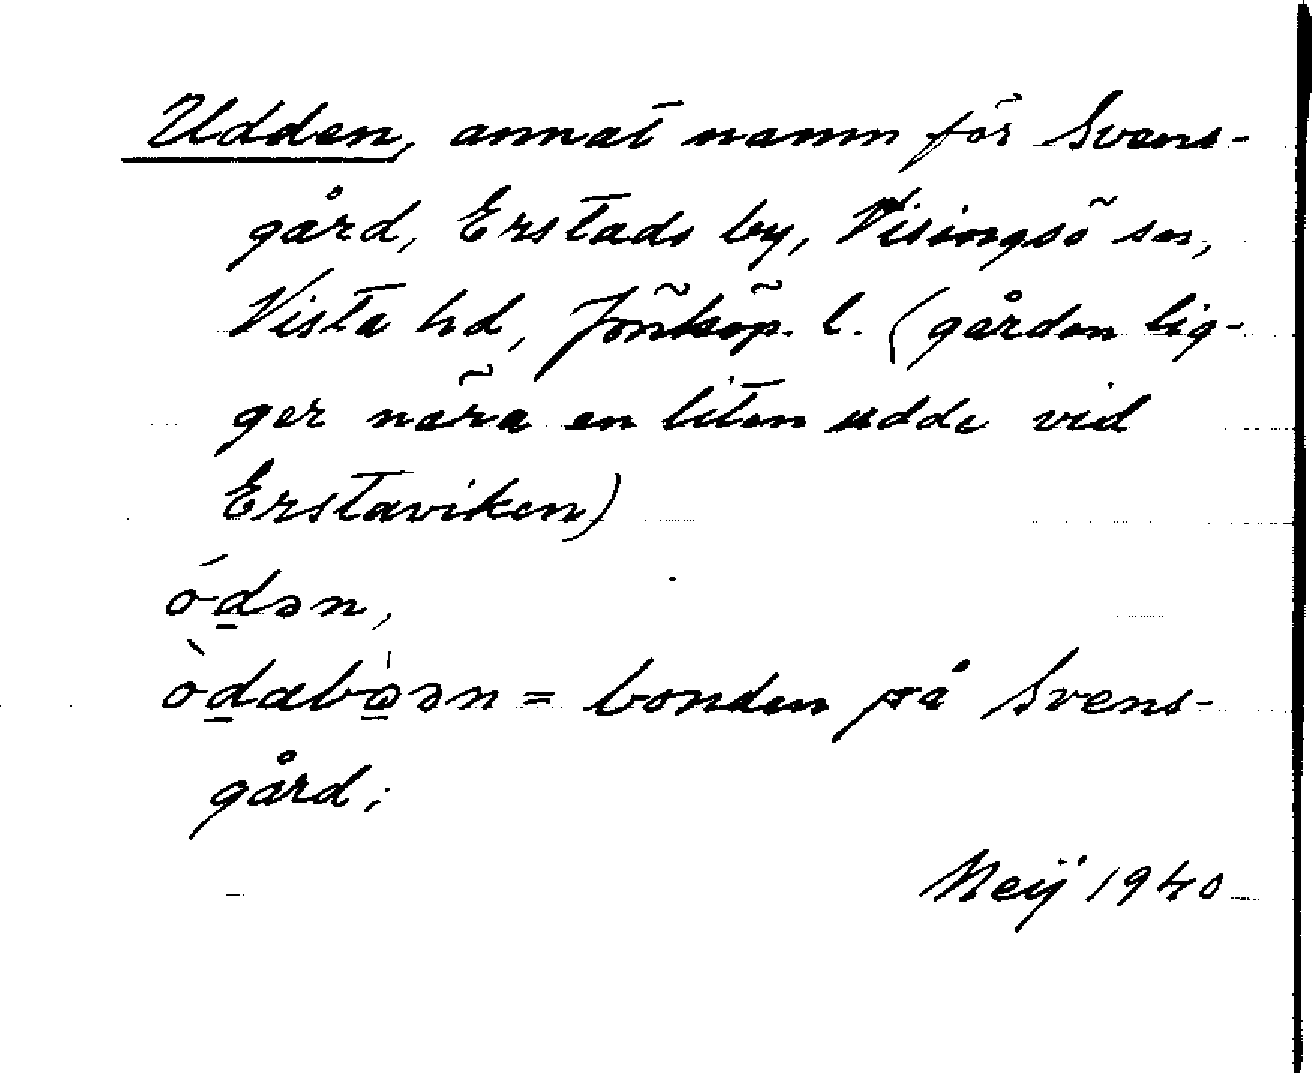 Udden, annat namn för Svens-
gård, Erstads by, Visingsö sn,
Vista hd, Jönköp. l. (gården lig-
ger nära en liten udde vid
Erstaviken)
ód̲ən,
òd̲abo̲̍ən = bonden på Svens-
gård;
Meÿ 1940